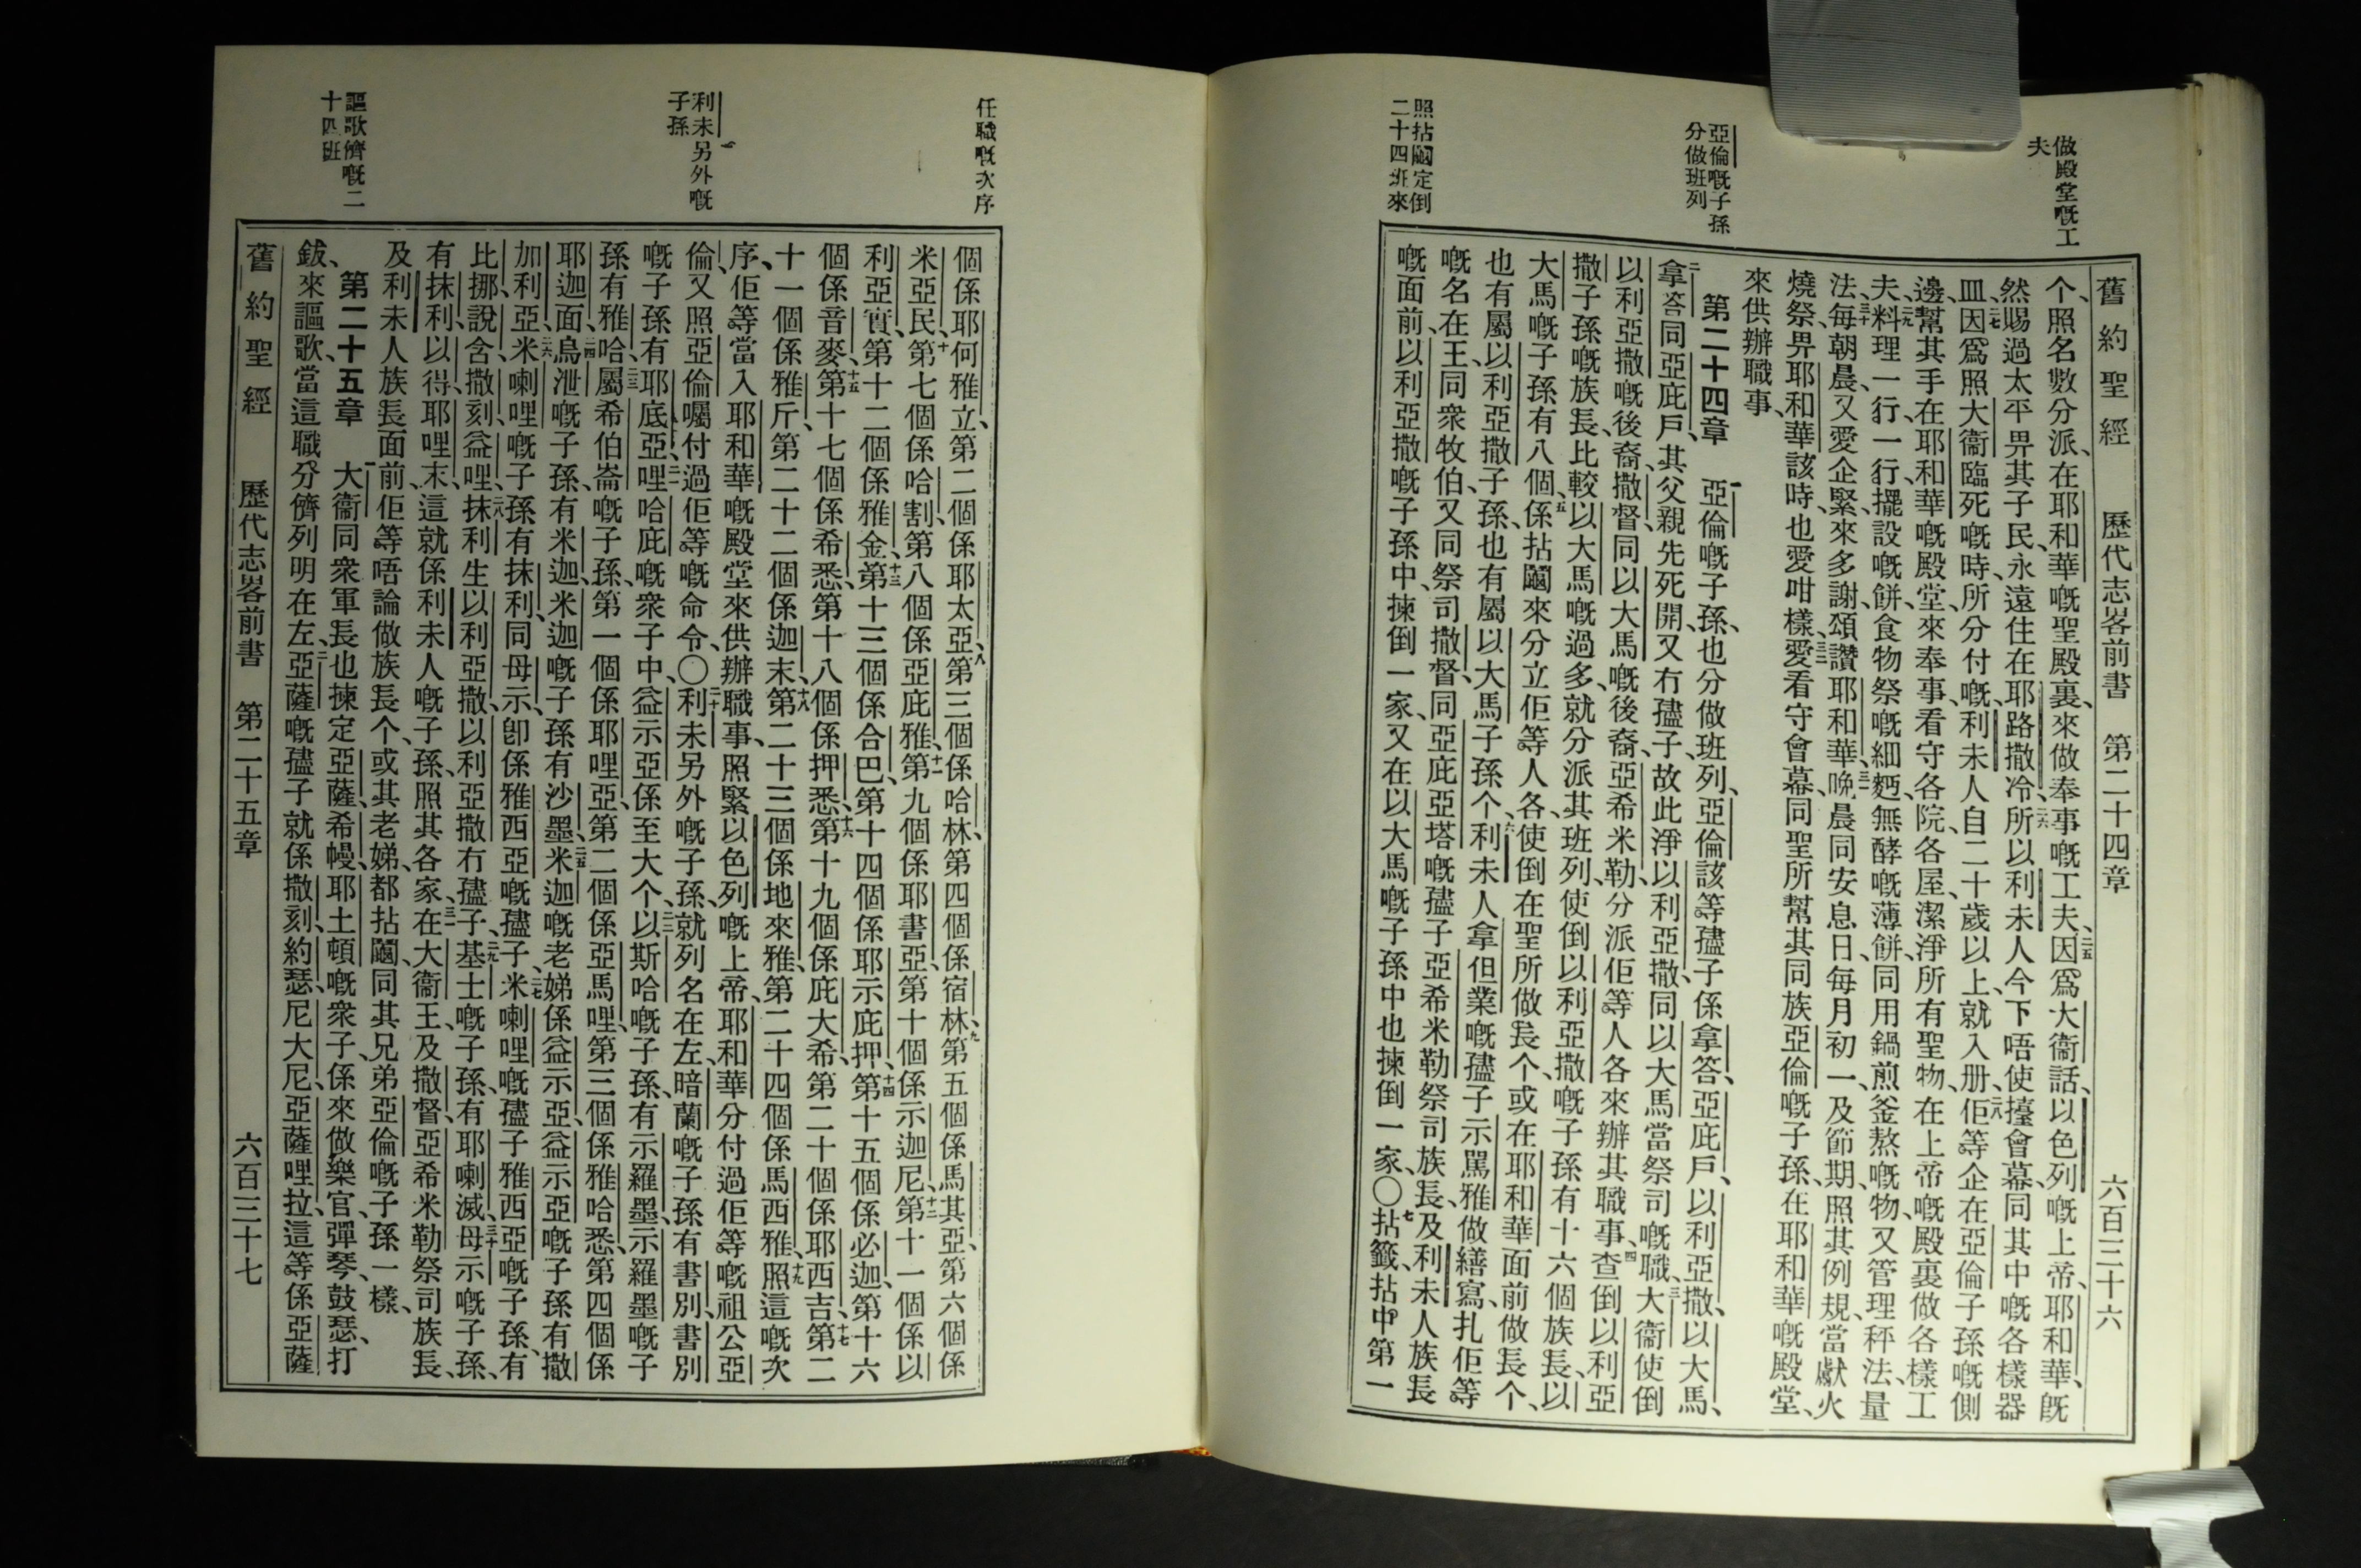 做殿堂嘅工
夫
亞倫嘅子孫
分做班列
照拈鬮定倒
二十四班來
舊約聖經 歷代志畧前書 第二十四章 六百三十六
个、照名數分派、在耶和華嘅聖殿裏、來做奉事嘅工夫、二五因爲大衞話、以色列嘅上帝、耶和華、旣
然賜過太平畀其子民、永遠住在耶路撒冷、二六所以利未人今下唔使擡會幕、同其中嘅各樣器
皿、二七因爲照大衞臨死嘅時、所分付嘅、利未人自二十歲以上、就入册、二八佢等企在亞倫子孫嘅側
邊、幫其手、在耶和華嘅殿堂、來奉事、看守各院、各屋、潔淨所有聖物、在上帝嘅殿裏做各樣工
夫、二九料理一行、一行、擺設嘅餅、食物祭嘅細麪、無酵嘅薄餅、同用鍋煎、釜熬嘅物、又管理秤法、量
法、三十每朝晨、又愛企緊來多謝、頌讚耶和華、三一晚晨同安息日、每月初一、及節期、照其例規、當獻火
燒祭畀耶和華該時、也愛咁樣、三二愛看守會幕、同聖所、幫其同族亞倫嘅子孫、在耶和華嘅殿堂、
來供辦職事、
第二十四章 一亞倫嘅子孫、也分做班列、亞倫該等孻子係拿答、亞庇戶、以利亞撒、以大馬、
二拿答同亞庇戶、其父親先死開、又冇孻子、故此淨以利亞撒、同以大馬當祭司嘅職、三大衞使倒
以利亞撒嘅後裔、撒督、同以大馬嘅後裔、亞希米勒、分派佢等人各來辦其職事、四查倒以利亞
撒子孫嘅族長、比較以大馬嘅過多、就分派其班列、使倒以利亞撒嘅子孫有十六個族長、以
大馬嘅子孫有八個、五係拈鬮來分立佢等人各、使倒在聖所做長个、或在耶和華面前做長个、
也有屬以利亞撒子孫、也有屬以大馬子孫个、六利未人拿但業嘅孻子示罵雅做繕寫、扎佢等
嘅名在王、同衆牧伯、又同祭司撒督、同亞庇亞塔嘅孻子亞希米勒祭司族長、及利未人族長
嘅面前、以利亞撒嘅子孫中、揀倒一家、又在以大馬嘅子孫中也揀倒一家、〇七拈籤、拈中第一
任職嘅次序
利未另外嘅
子孫
謳歌儕嘅二
十四班
個係耶何雅立、第二個係耶太亞、八第三個係哈林、第四個係宿林、九第五個係馬其亞、第六個係
米亞民、十第七個係哈割、第八個係亞庇雅、十一第九個係耶書亞、第十個係示迦尼、十二第十一個係以
利亞實、第十二個係雅金、十三第十三個係合巴、第十四個係耶示庇押、十四第十五個係必迦、第十六
個係音麥、十五第十七個係希悉、第十八個係押悉、十六第十九個係庇大希、第二十個係耶西吉、十七第二
十一個係雅斤、第二十二個係迦末、十八第二十三個係地來雅、第二十四個係馬西雅、十九照這嘅次
序、佢等當入耶和華嘅殿堂來供辦職事、照緊以色列嘅上帝、耶和華分付過佢等嘅祖公亞
倫、又照亞倫囑付過佢等嘅命令、〇二十利未另外嘅子孫、就列名在左、暗蘭嘅子孫有書別、書別
嘅子孫有耶底亞、二一哩哈庇嘅衆子中、益示亞係至大个、二二以斯哈嘅子孫、有示羅墨、示羅墨嘅子
孫有雅哈、二三屬希伯崙嘅子孫、第一個係耶哩亞、第二個係亞馬哩、第三個係雅哈悉、第四個係
耶迦面、二四烏泄嘅子孫、有米迦、米迦嘅子孫有沙墨、二五米迦嘅老娣係益示亞、益示亞嘅子孫有撒
加利亞、二六米喇哩嘅子孫有抹利、同母示、卽係雅西亞嘅孻子、二七米喇哩嘅孻子雅西亞嘅子孫、有
比挪、說含、撒刻、益哩、二八抹利生以利亞撒、以利亞撒冇孻子、二九基士嘅子孫、有耶喇滅、三十母示嘅子孫、
有抹利、以得、耶哩末、這就係利未人嘅子孫、照其各家、三一在大衞王、及撒督、亞希米勒祭司族長、
及利未人族長面前、佢等唔論做族長个、或其老娣、都拈鬮、同其兄弟亞倫嘅子孫一樣、
第二十五章 一大衞同衆軍長也揀定亞薩、希幔、耶土頓嘅衆子、係來做樂官、彈琴、鼓瑟、打
鈸、來謳歌、當這職分儕、列明在左、二亞薩嘅孻子就係撒刻、約瑟、尼大尼、亞薩哩拉、這等係亞薩
舊約聖經 歷代志畧前書 第二十五章 六百三十七